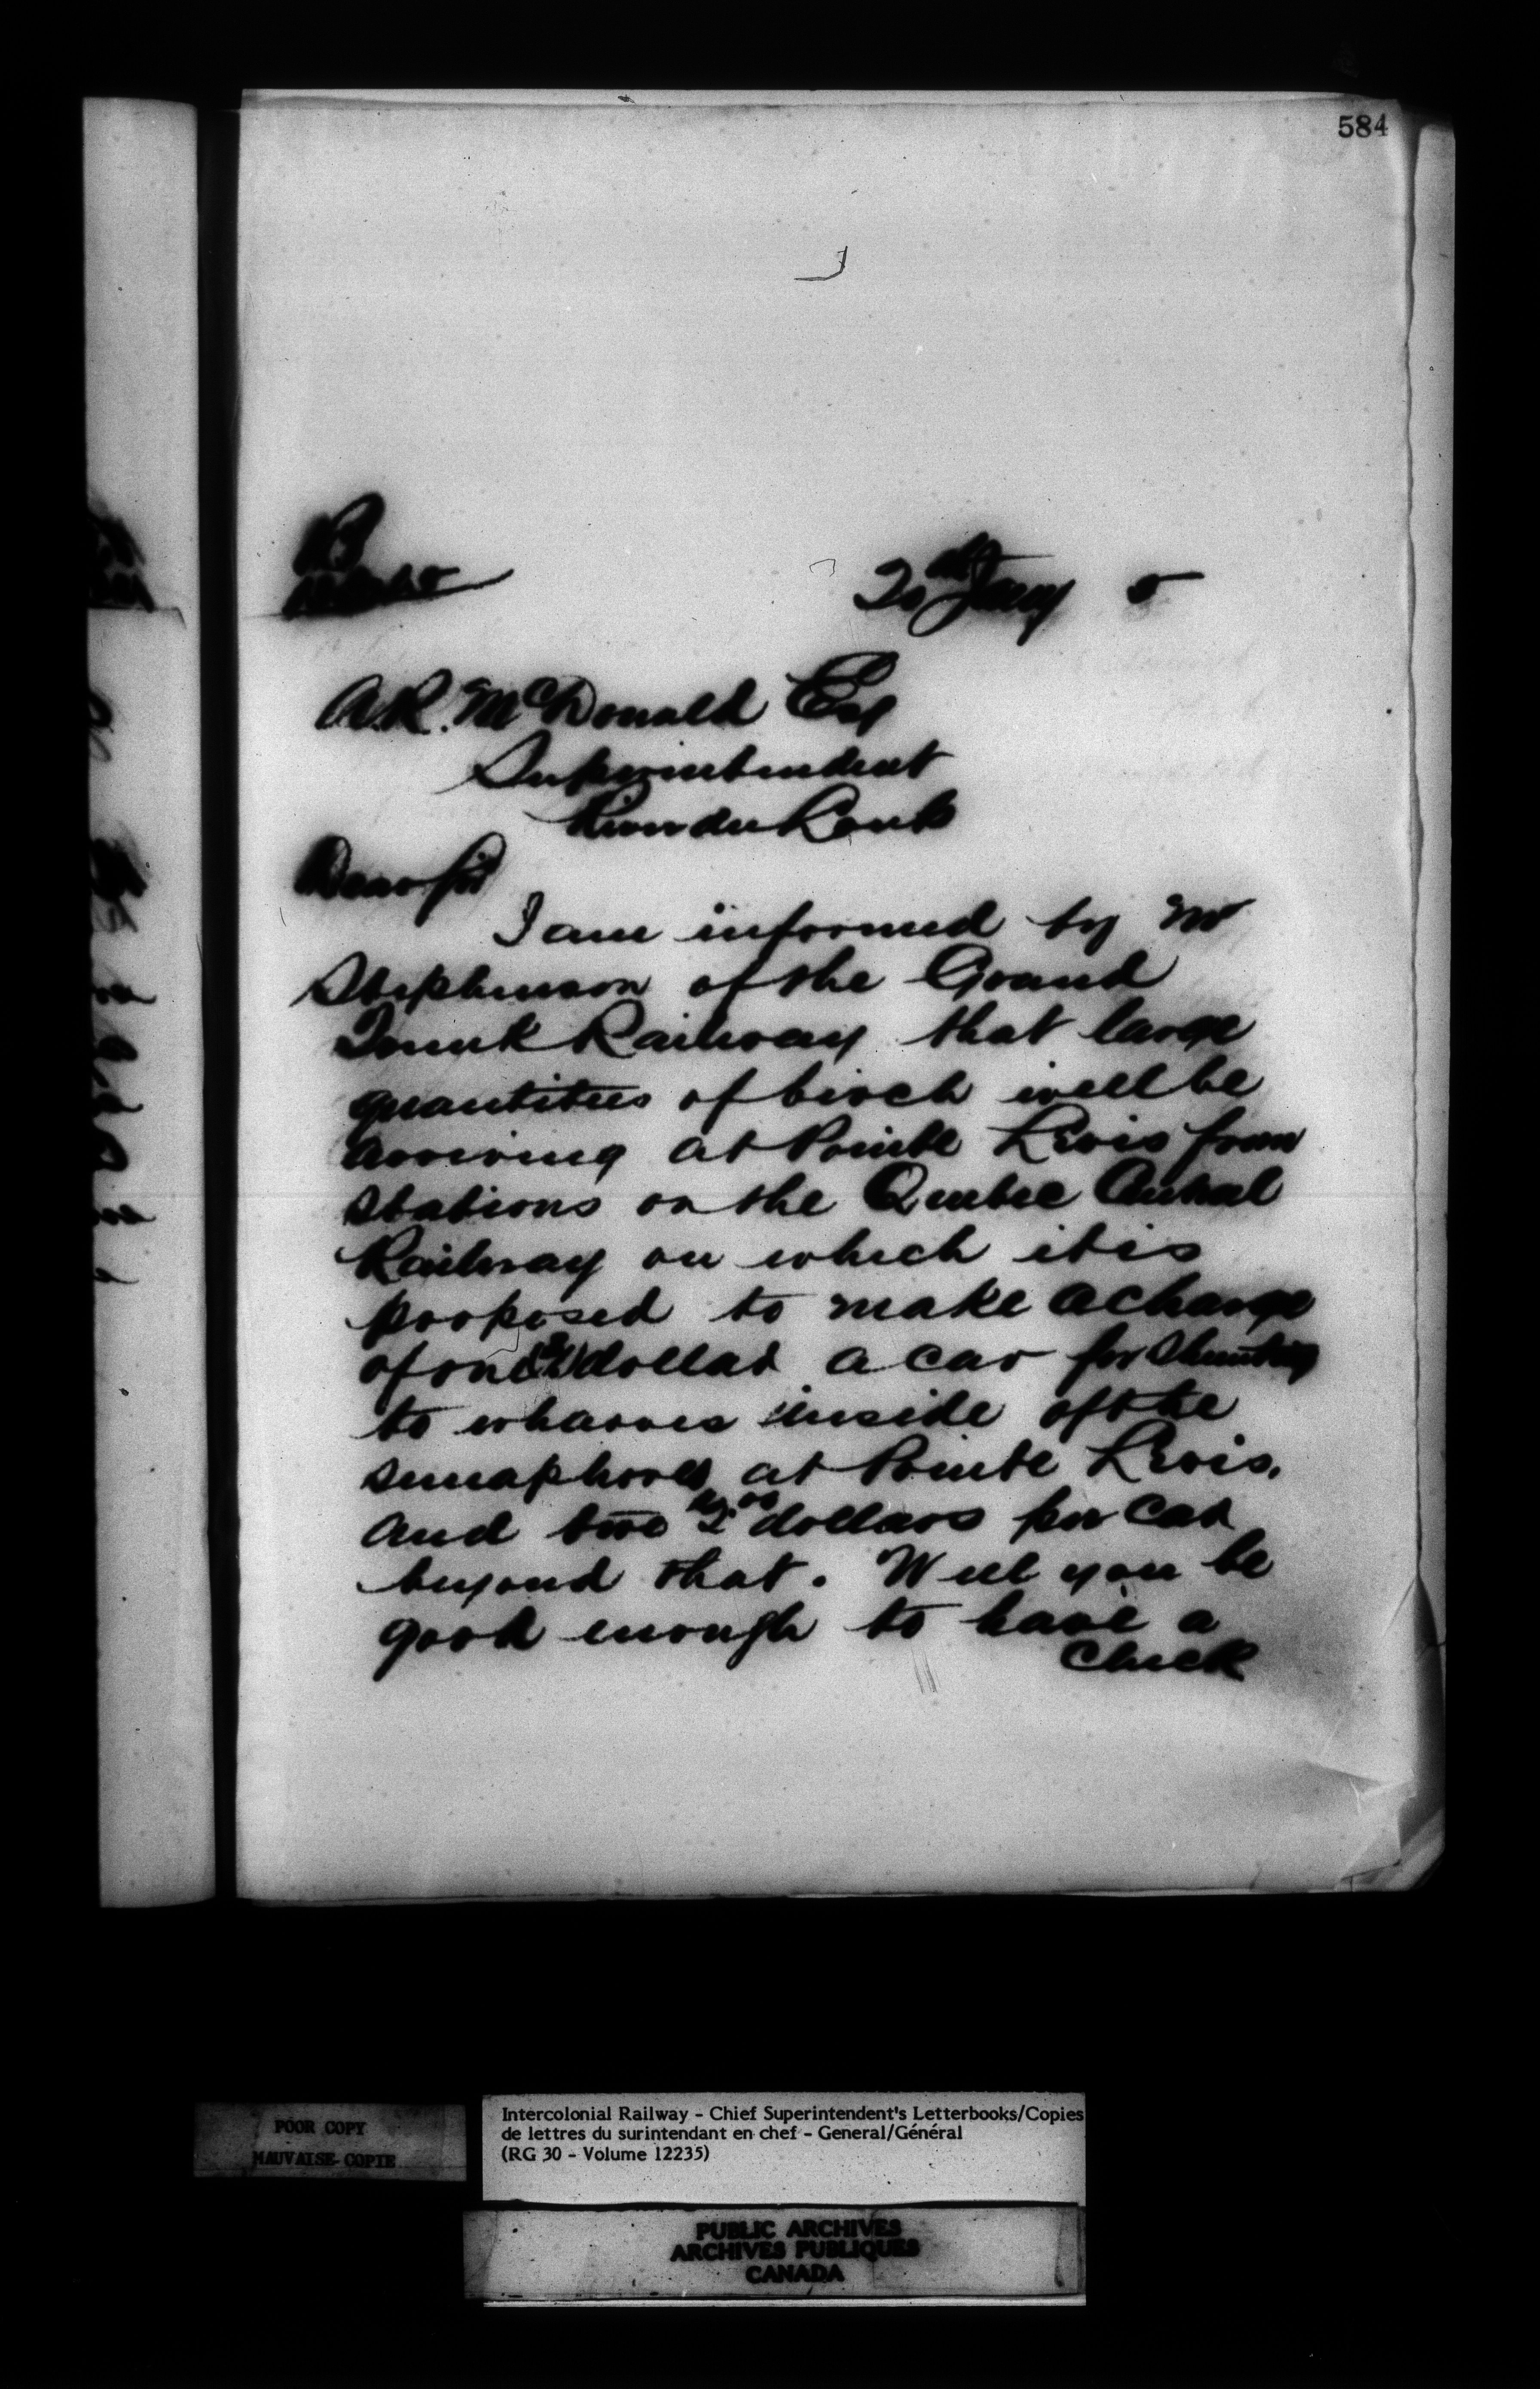 584
B
20th Jany 5
A.R. McDonald Esq
Superintendent
Riviere du Loup
Dear Sir
I am informed by Mr
Stephenson of the Grand
Trunk Railway that large
quantities of birch will be
arriving at Pointe Levis from
stations on the Quebec Central
Railway on which it is
proposed to make a charge
of one dollar a car for shunting
to wharves inside of the
semaphores at Pointe Levis.
and two $2.00 dollars per car
beyond that. Will you be
good enough to have a
check
POOR COPY
MAUVAISE COPIE
Intercolonial Railway - Chief Superintendent's Letterbooks/Copies
de lettres du surintendant en chef - General/Général
(RG 30 - Volume 12235)
PUBLIC ARCHIVES
ARCHIVES PUBLIQUES
CANADA